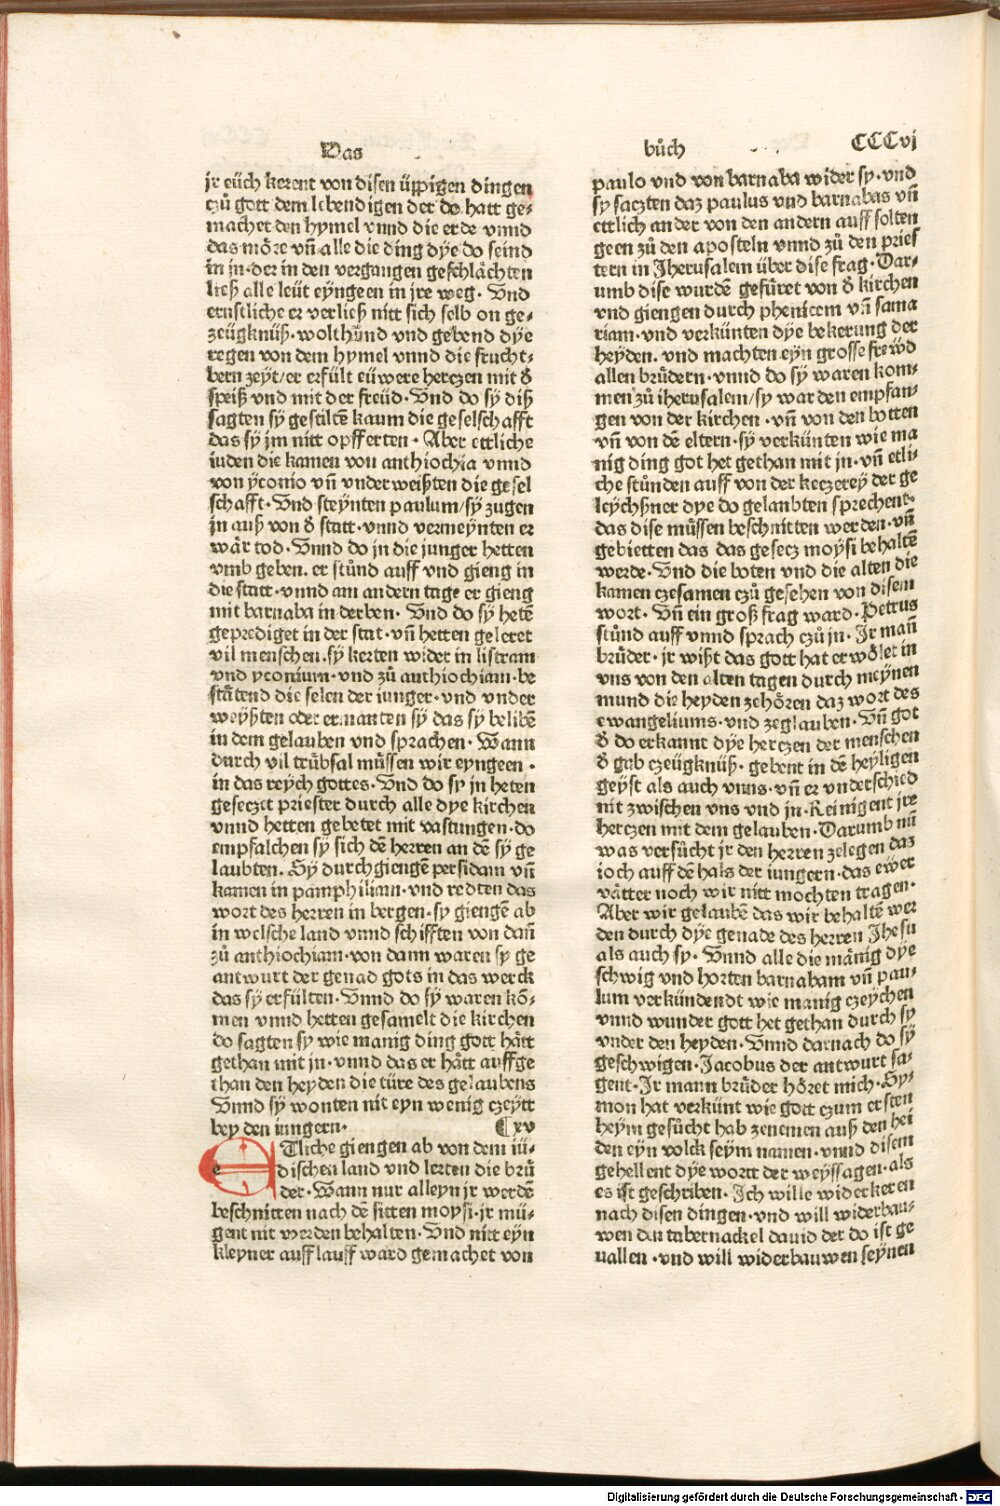 Das
bůch
CCCvj
jr eüch kerent von disen üppigen dingen
czů gott dem lebendigen der do hatt ge⸗
machet den hymel vnnd die erde vnnd
das möre vñ alle die ding dye do seind
in jn·der in den vergangen geschlächten
ließ alle leüt eyngeen in jre weg· Vnd
ernstliche er verließ nitt sich selb on ge⸗
zeügknüß·wolthůnd vnd gebend dye
regen von dem hymel vnnd die frucht⸗
bern zeyt/er erfült eüwere herczen mit d̕
speiß vnd mit der freüd·Vnd do sÿ diß
sagten sÿ gestilte̅ kaum die geselschafft
das sÿ jm nitt opfferten· Aber ettliche
iuden die kamen von anthiochia vnnd
von yconio vñ vnderweißten die gesel
schafft·Vnd steynten paulum/sÿ zugen
jn auß von d̕ statt·vnnd vermeynten er
wär tod·Vnnd do jn die junger hetten
vmb geben. er stůnd auff vnd gieng in
die statt·vnnd am andern tage er gieng
mit barnaba in derben· Vnd do sÿ hete̅
geprediget in der stat·vñ hetten geleret
vil menschen.sÿ kerten wider in listram
vnd yconium·vnd zů anthiochiam·be
stätend die selen der iunger·vnd vnder
weyßten oder ermanten sÿ das sÿ belibe̅
in dem gelauben vnd sprachen· Wann
durch vil trůbsal můssen wir eyngeen·
in das reych gottes·Vnd do sy jn heten
gesetzet priester durch alle dye kirchen
vnnd hetten gebetet mit vastungen·do
empfalchen sÿ sich de̅ herren an de̅ sÿ ge
laubten. Sÿ durchgienge̅ persidam vñ
kamen in pamphiliam·vnd redten das
wort des herren in bergen·sy gienge̅ ab
in welsche land vnnd schifften von dañ
zů anthiochiam·von dann waren sy ge
antwurt der genad gots in das werck
das sÿ erfülten·Vnnd do sÿ waren ko̅⸗
men vnnd hetten gesamelt die kirchen
do sagten sy wie manig ding gott hätt
gethan mit jn·vnnd das er hätt auffge
than den heyden die türe des gelaubens
Vnnd sÿ wonten nit eyn wenig czeytt
bey den iungern· ¶xv
ETliche giengen ab von dem iü⸗
dischen land vnd lerten die brů
der·Wann nur alleyn jr werde̅
beschnitten nach de̅ sitten moysi·jr mü⸗
gent nit werden behalten·Vnd nitt eyn
kleyner aufflauff ward gemachet von
paulo vnd von barnaba wider sy·vnd
sy saczten daz paulus vnd barnabas vñ
ettlich ander von den andern auff solten
geen zů den aposteln vnnd zů den pries
tern in Jherusalem über dise frag·Dar⸗
umb dise wurde̅ gefüret von d̕ kirchen
vnd giengen durch phenicem vñ sama
riam·vnd verkünten dye bekerung der
heyden. vnd machten eyn grosse frewd
allen brůdern·vnnd do sÿ waren kom⸗
men zů iherusalem/sy warden empfan⸗
gen von der kirchen·vñ von den botten
vñ von de̅ eltern·sÿ verkünten wie ma
nig ding got het gethan mit jn·vñ etli⸗
che stůnden auff von der keczerey der ge
leychßner dye do gelaubten sprechent·
das dise můssen beschnitten werden·vñ
gebietten das das gesecz moÿsi behalte̅
werde·Vnd die boten vnd die alten die
kamen czesamen czů gesehen von disem
wort· Vñ ein groß frag ward· Petrus
stůnd auff vnnd sprach czů jn· Jr mañ
brůder·jr wißt das gott hat erwölet in
vns von den alten tagen durch meynen
mund die heyden zehören daz wort des
ewangeliums·vnd zeglauben·Vñ got
d̕ do erkannt dÿe herczen der menschen
d̕ gab czeügknüß·gebent in de̅ heyligen
geyst als auch vnns·vñ er vnderschied
nit zwischen vns vnd jn·Reinigent jre
herczen mit dem gelauben·Darumb nů
was versůcht jr den herren zelegen daz
ioch auff de̅ hals der iungern·das ewer
vätter noch wir nitt mochten tragen·
Aber wir gelaube̅ das wir behalte̅ wer
den durch dye genade des herren Jhesu
als auch sy·Vnnd alle die mänig dÿe
schwig vnd horten barnabam vñ pau⸗
lum verkündendt wie manig czeychen
vnnd wunder gott het gethan durch sy
vnder den heyden·Vnnd darnach do sÿ
geschwigen·Jacobus der antwurt sa⸗
gent·Jr mann brůder höret mich·Sy⸗
mon hat verkünt wie gott czum ersten
heym gesůcht hab zenemen auß den hei
den eyn volck seym namen·vnnd disem
gehellent dye wortt der weyssagen·als
es ist geschriben·Ich wille widerkeren
nach disen dingen·vnd will widerbau⸗
wen den tabernackel dauid der do ist ge
uallen·vnd will widerbauwen seynen
Digitalisierung gefördert durch die Deutsche Forschungsgemeinschaft - DFG